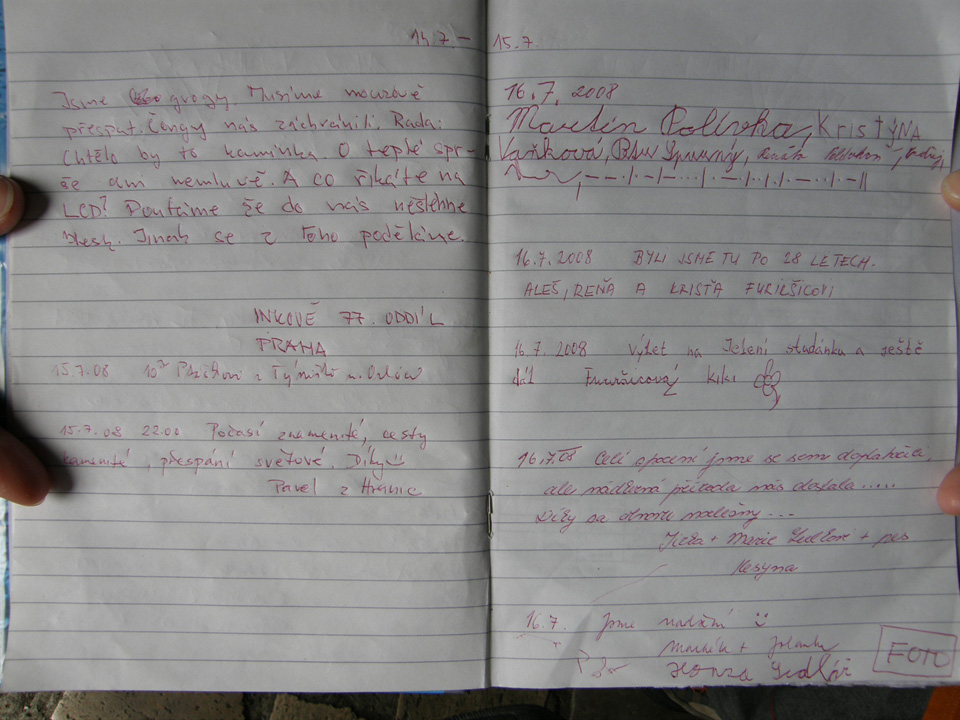 14.7. –
Jsme grogy. Musíme nouzově
přespat. Čongy nás zachránili. Rada:
Chtělo by to kamínka. O teplé spr-
še ani nemluvě. A co říkáte na
LCD? Doufáme že do nás nešlehne
blesk. Jinak se z toho poděláme.
INKOVÉ 77. ODDÍL
PRAHA
15.7.08 z Týniště n. Orlicí
15.7.08 22:00 Počasí znamenité, cesty
kamenité, přespání světové. Díky
Pavel z Hranic
15.7.
16.7.2008
Martin Polívka, KRISTÝNA
Vaňková,
16.7.2008 BYLI JSME TU PO 28 LETECH.
ALEŠ, REŇA A KRISTA
16.7.2008 výlet na Jelení studánku a ještě
dál Kiki
16.7.08 Celí zpocení jsme se sem doplahočili,
ale nádherná příroda nás dostala.....
Díky za otevřené ...
+ Marie + pes
16.7. Jsme nadšení
Honza Sedlář
FOTO